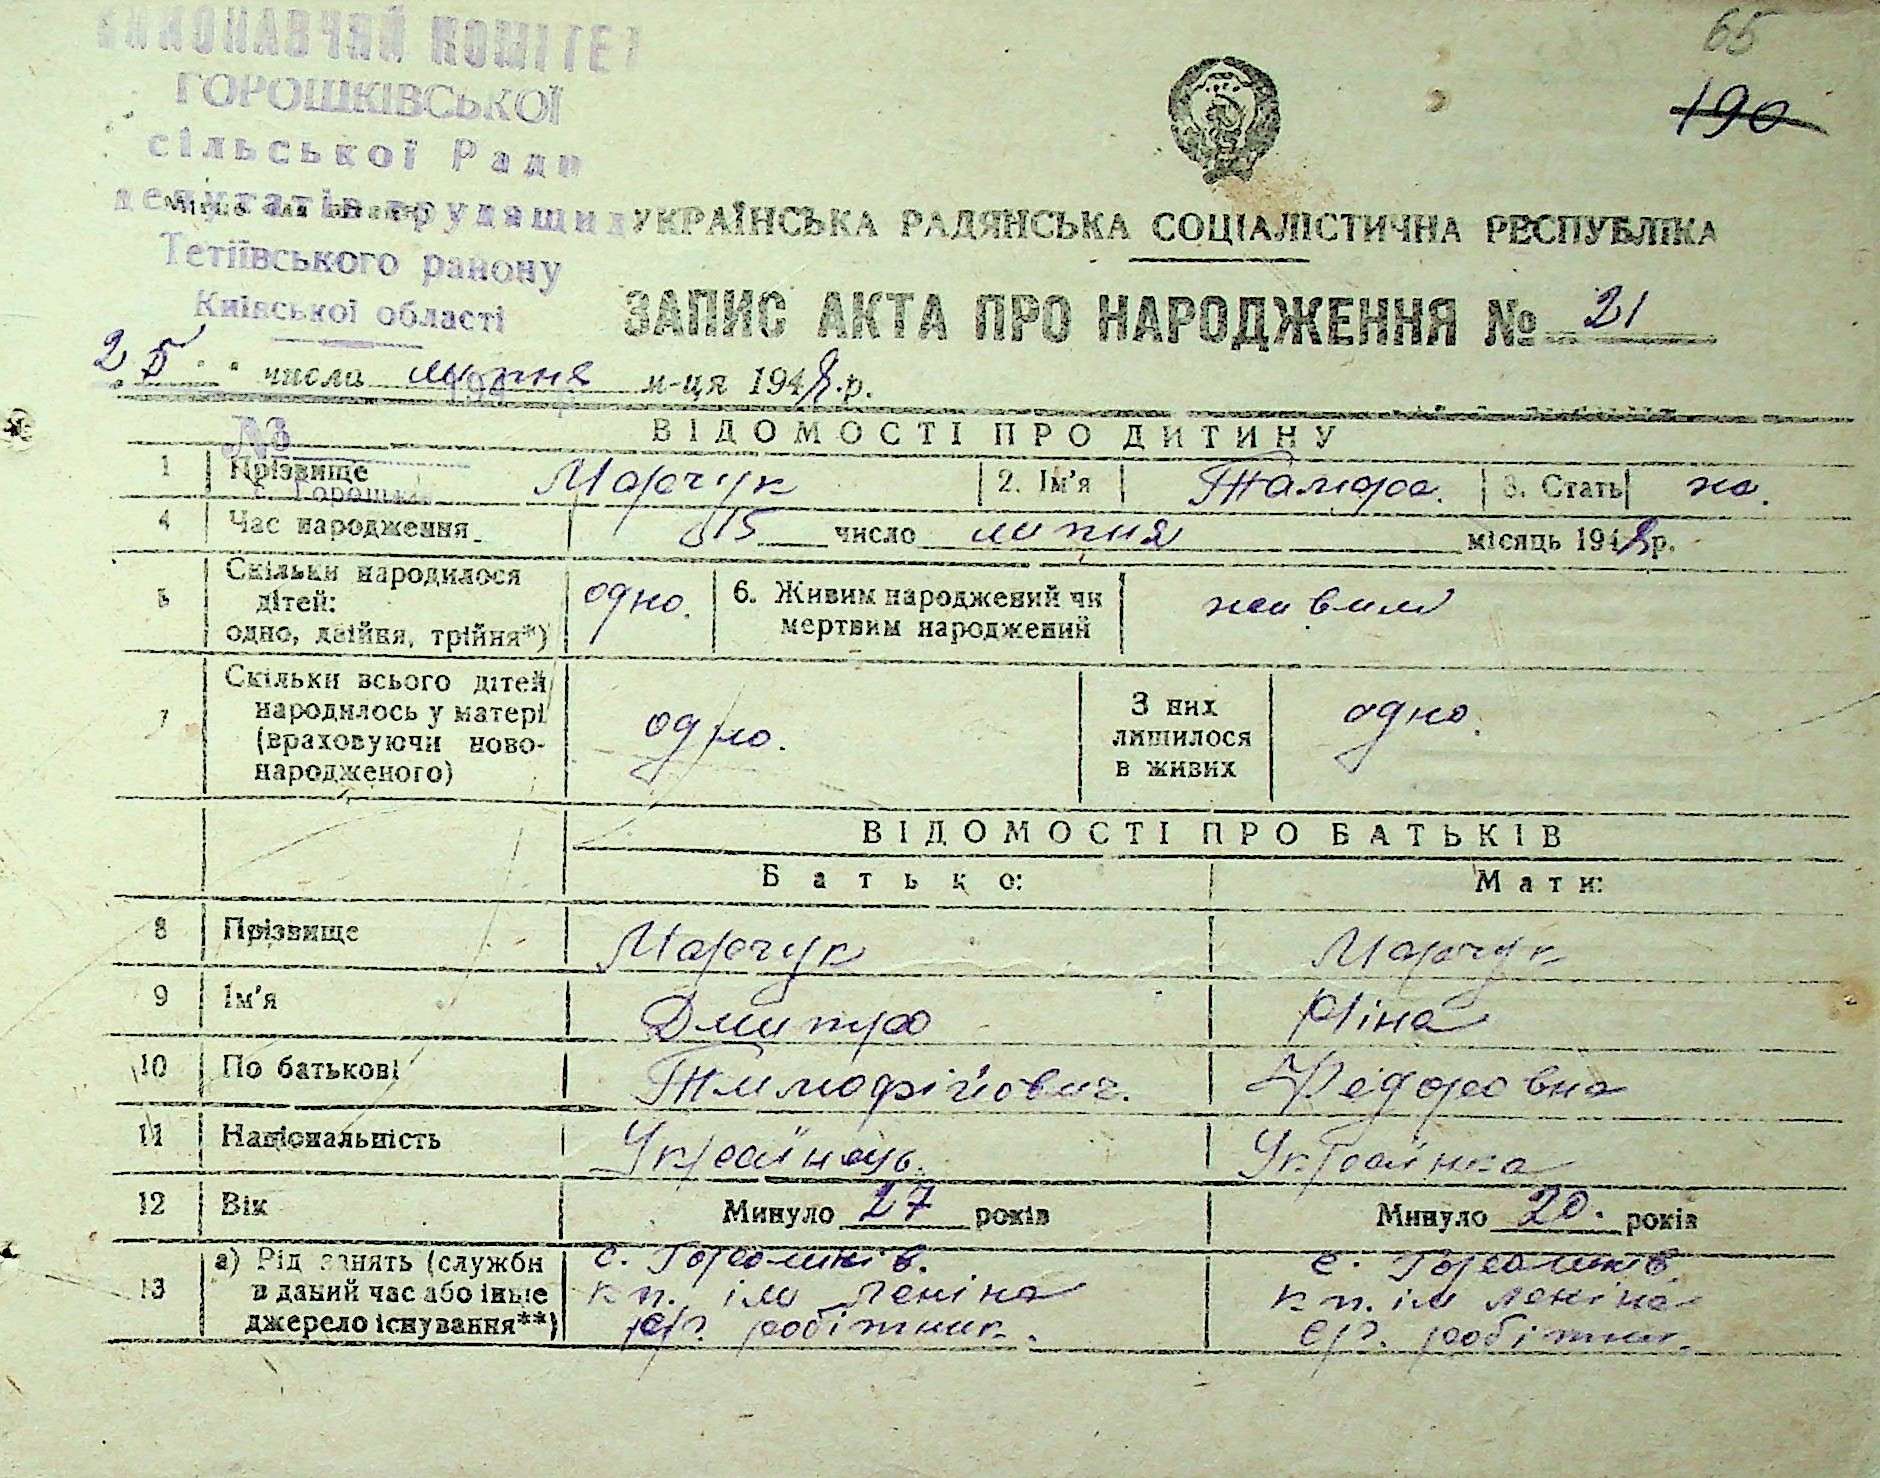 ВИКОНАВЧИЙ КОМІТЕТ
ГОРОШКІВСЬКОЇ
сільської Ради
депутатів трудящих
Тетіївського району
Київської області
194
№
с. Горошків
65
190
УКРАЇНСЬКА РАДЯНСЬКА СОЦІАЛІСТИЧНА РЕСПУБЛІКА
ЗАПИС АКТА ПРО НАРОДЖЕННЯ № 21
25 числа липня м-ця 1948 р.
ВІДОМОСТІ ПРО ДИТИНУ
1 Прізвище Марчук 2. Ім'я Тамара. 3. Стать жо.
4 Час народження 15 число липня місяць 1948 р.
5 Скільки народилося дітей: одно, двійня, трійня*) одно. 6. Живим народжений чи мертвим народжений живим
7 Скільки всього дітей народилось у матері (враховуючи новонародженого) одно. З них лишилося в живих одно.
ВІДОМОСТІ ПРО БАТЬКІВ
Батько: Мати:
8 Прізвище Марчук Марчук
9 Ім'я Дмитро Ніна
10 По батькові Тимофійович. Федоровна
11 Національність Українець. Українка
12 Вік Минуло 27 років Минуло 20. років
13 а) Рід занять (служби в даний час або інше джерело існування**)
с. Горошків. с. Горошків.
кп. ім Леніна кп. ім Леніна
робітник. робітник.